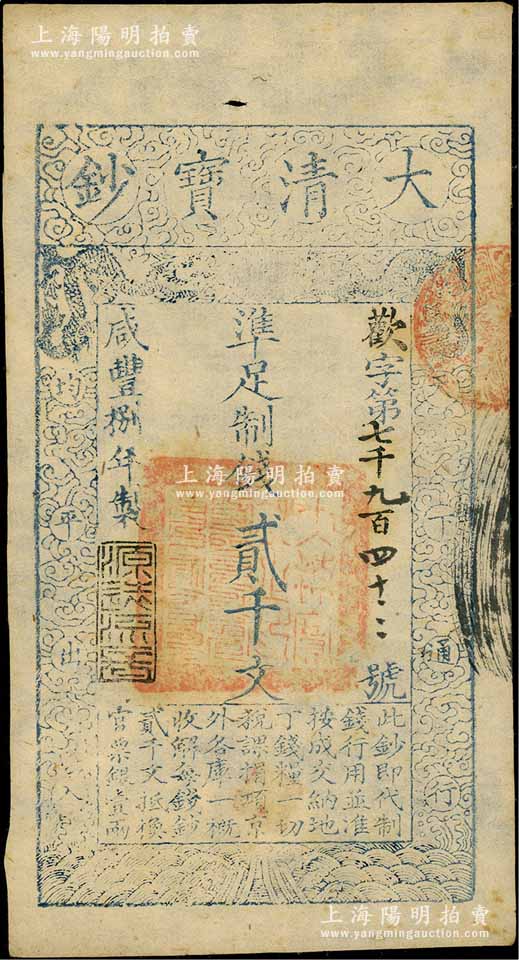 上海陽明拍賣
www.yangmingauction.com
大清寶鈔
天下通行
均平出入
歡字第七千九百四十二號
準足制錢貳千文
咸豐捌年製
此鈔即代制
錢行用並准
按成交納地
丁錢糧一切
稅課捐項京
外各庫一概
收解每錢鈔
貳千文抵換
官票銀壹兩
上海陽明拍賣
www.yangmingauction.com
上海陽明拍賣
www.yangmingauction.com